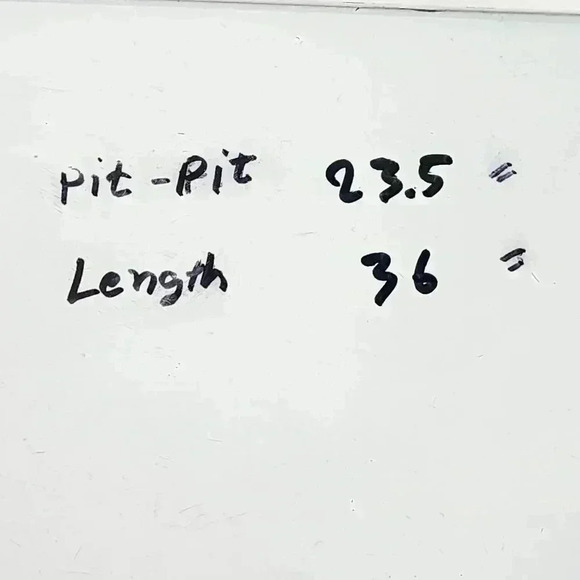 Pit-Pit 23.5 "
Length 36 "